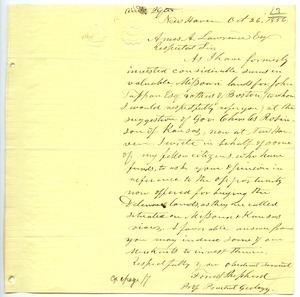 New Haven Oct 26, 1856
Amos A. Lawrence Esq
Respected Sir
As I have formerly
invested considerable sums in
valuable Missouri lands for John
Tappan Esq & others of Boston (to whom
I would respectfully refer you) at the
suggestion of Gov. Charles Robin-
son of Kansas, now at New Ha-
ven I write in behalf of some
of my fellow citizens who have
funds, to ask your opinion in
reference to the opportunity
now offered for buying the
Delaware lands as they are called
situated on Missouri & Kansas
rivers. A favorable answer from
you may induce some of our
to invest therein.
Respectfully your obedient servant
Forrest Shepherd
Prof. Geology.